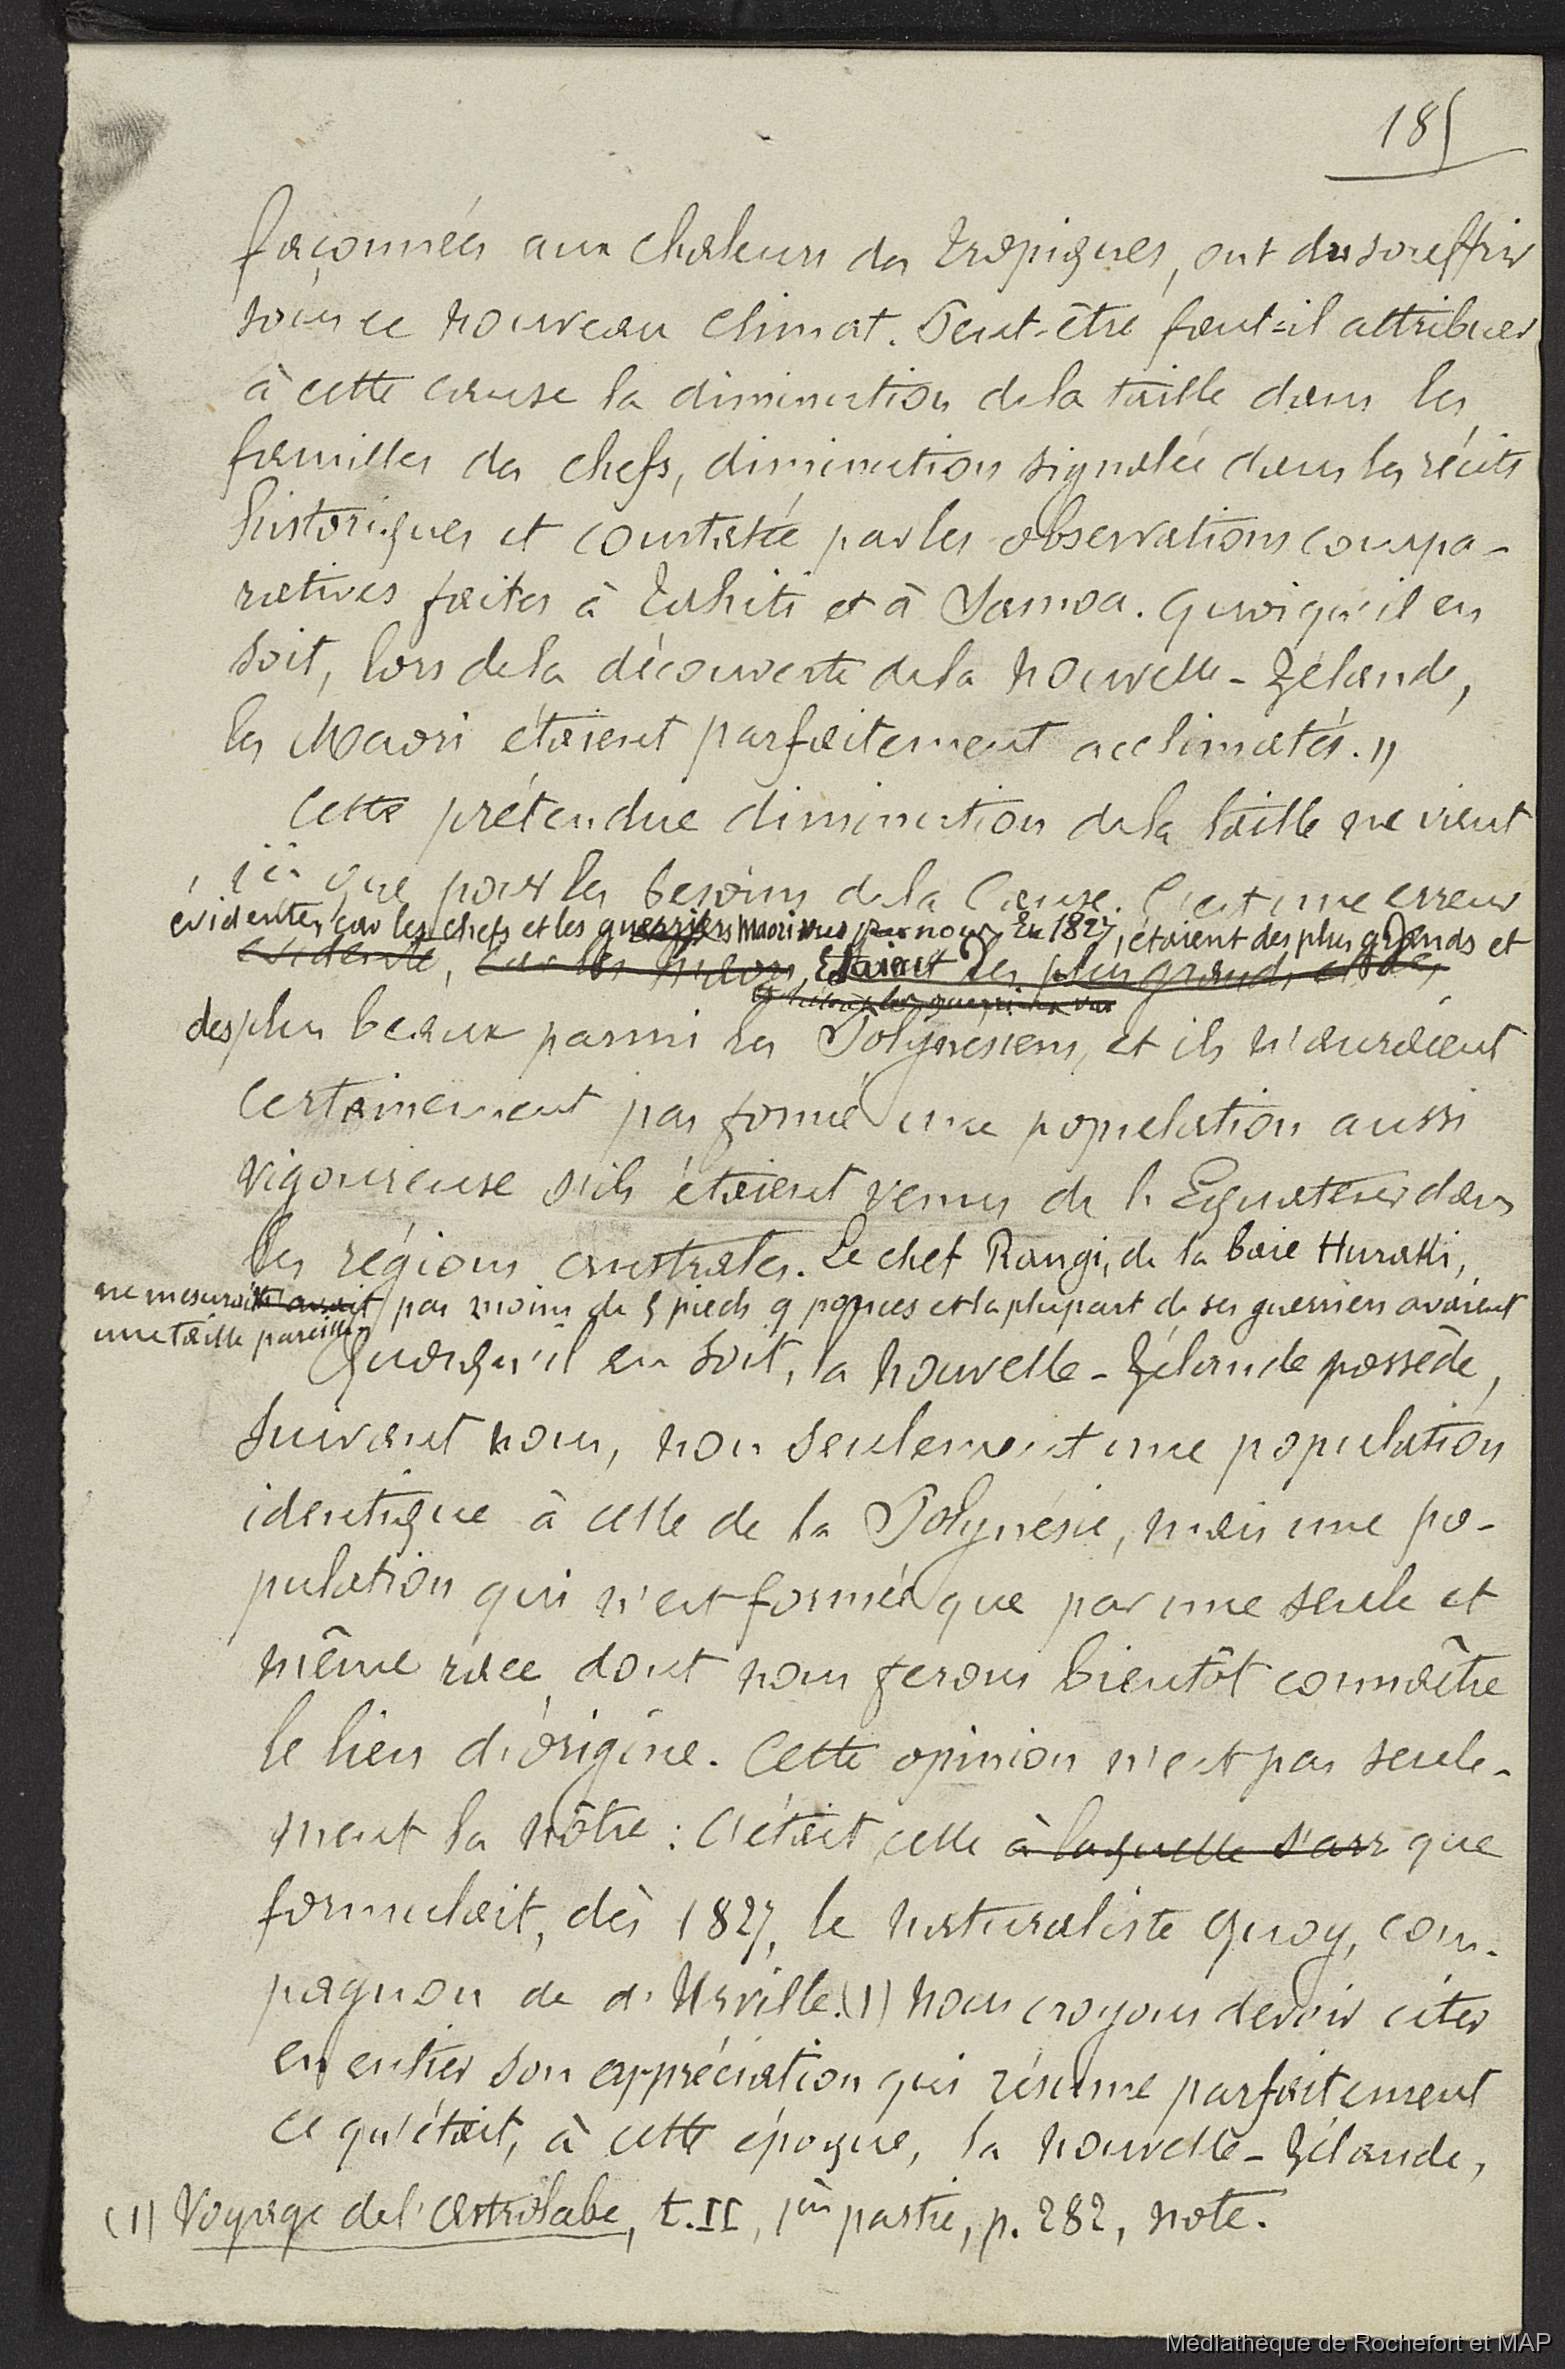 185
façonnées aux chaleurs des tropiques, ont du souffrir
sous ce nouveau climat. Peut-être faut-il attribuer
à cette cause la diminution de la taille dans les
familles des chefs, diminution signalée dans les récits
historiques et constatée par les observations compa-
ratives faites à Tahiti et à Samoa. Quoiqu'il en
soit, lors de la découverte de la Nouvelle-Zélande,
les Maori étaient parfaitement acclimatés. »
Cette prétendue diminution de la taille ne vient
ici que pour les besoins de la cause. C'est une erreur
évidente, car les chefs et les guerriers Maori vus par nous, en 1827, étaient des plus grands et
évidente, car les étaient des plus grands et des
les guerriers vus
des plus beaux parmi les Polynésiens, et ils n'auraient
certainement pas formé une population aussi
vigoureuse s'ils étaient venus de l'Equateur dans
les régions australes. Le chef Rangi, de la baie Huraki,
ne mesurait avait pas moins de 5 pieds 9 pouces et la plupart de ses guerriers avaient
une taille pareille.
Quoiqu'il en soit, la Nouvelle-Zélande possède,
suivant nous, non seulement une population
identique à celle de la Polynésie, mais une po-
pulation qui n'est formée que par une seule et
même race dont nous ferons bientôt connaître
le lieu d'origine. Cette opinion n'est pas seule-
ment la nôtre : C'était celle à laquelle s'arr que
formulait, dès 1827, le naturaliste Quoy, com-
pagnon de d'Urville. (1) Nous croyons devoir citer
en entier son appréciation qui résume parfaitement
ce qu'était, à cette époque, la Nouvelle-Zélande,
(1) Voyage de l'Astrolabe, t. II, 1ère partie, p. 282, note.
Médiathèque de Rochefort et MAP